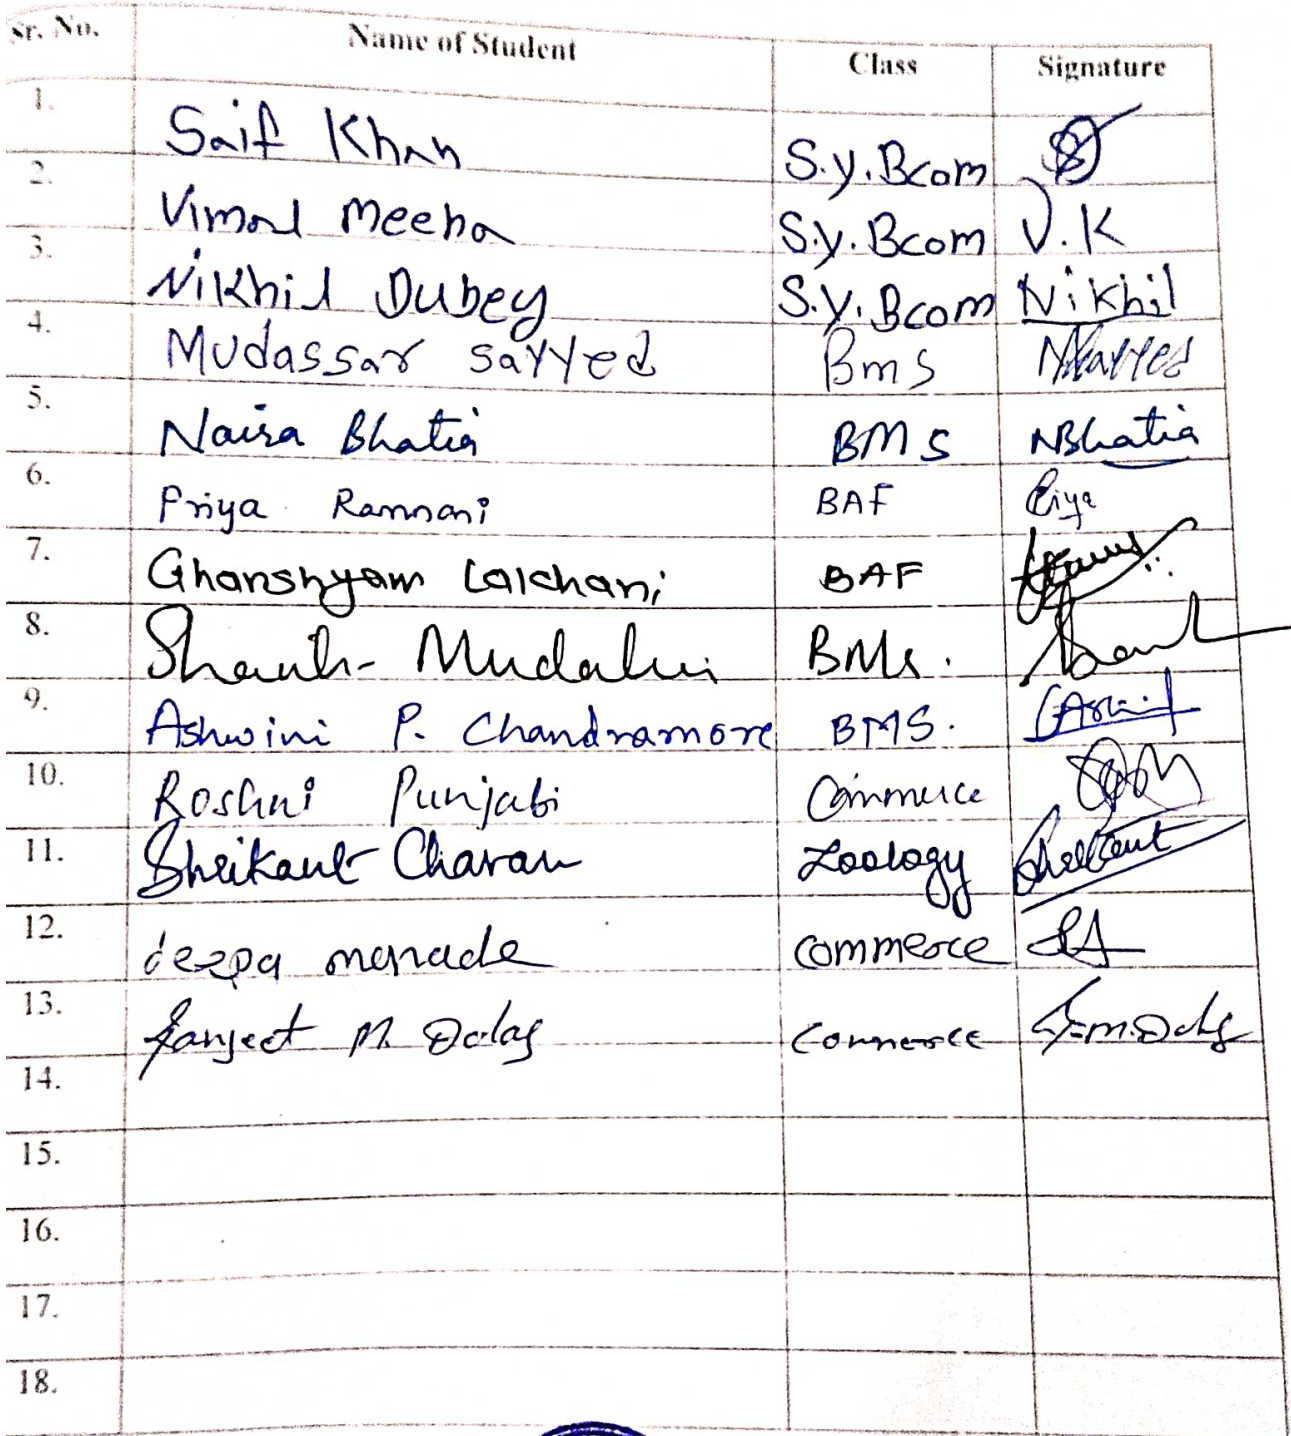 Sr. No. Name of Student Class Signature
1. Saif Khan S.y. Bcom
2. Vimal Meena S.y. Bcom V.K
3. Nikhil Dubey S.y. Bcom Nikhil
4. Mudassar Sayyed Bms
5. Naira Bhatia BMS NBhatia
6. Priya Ramnani BAF Priya
7. Ghanshyam Lalchani BAF
8. Mudaliar BMS.
9. Ashwini P. Chandramore BMS.
10. Roshni Punjabi Commerce
11. Shrikant Chavan Zoology
12. deepa menade commerce
13. Sanjeet M. Commerce
14.
15.
16.
17.
18.